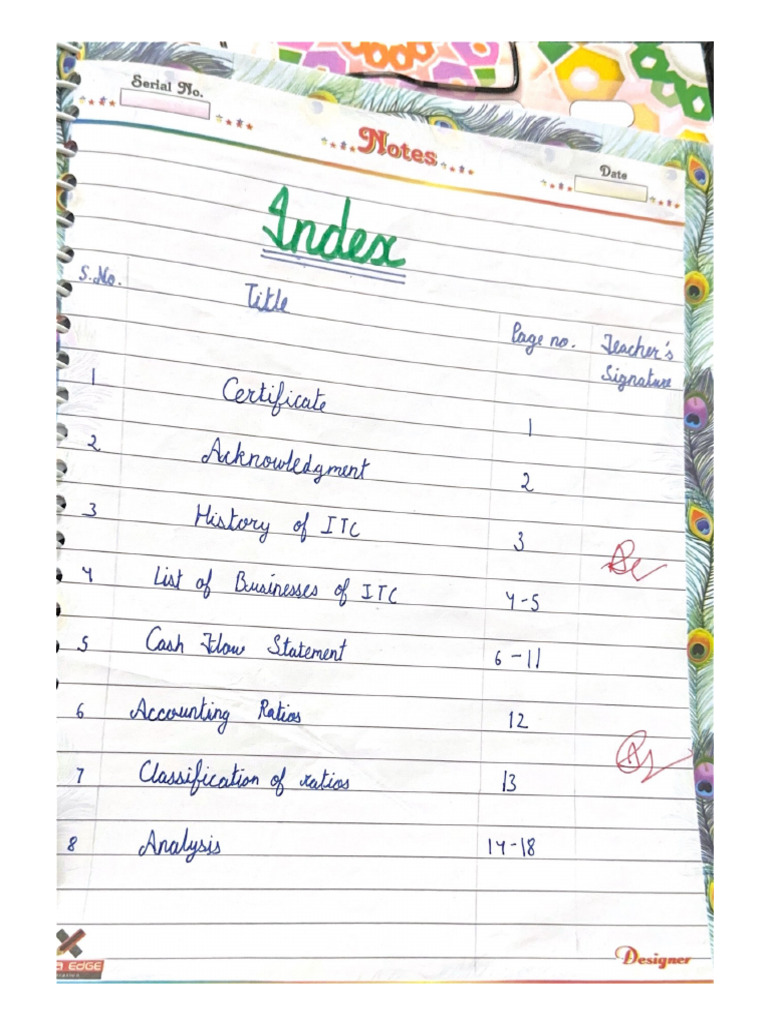 Serial No.
Notes
Date
Index
S.No. Title Page no. Teacher's Signature
1 Certificate 1
2 Acknowledgment 2
3 History of ITC 3
4 List of Businesses of ITC 4-5
5 Cash Flow Statement 6-11
6 Accounting Ratios 12
7 Classification of ratios 13
8 Analysis 14-18
EDGE
Designer